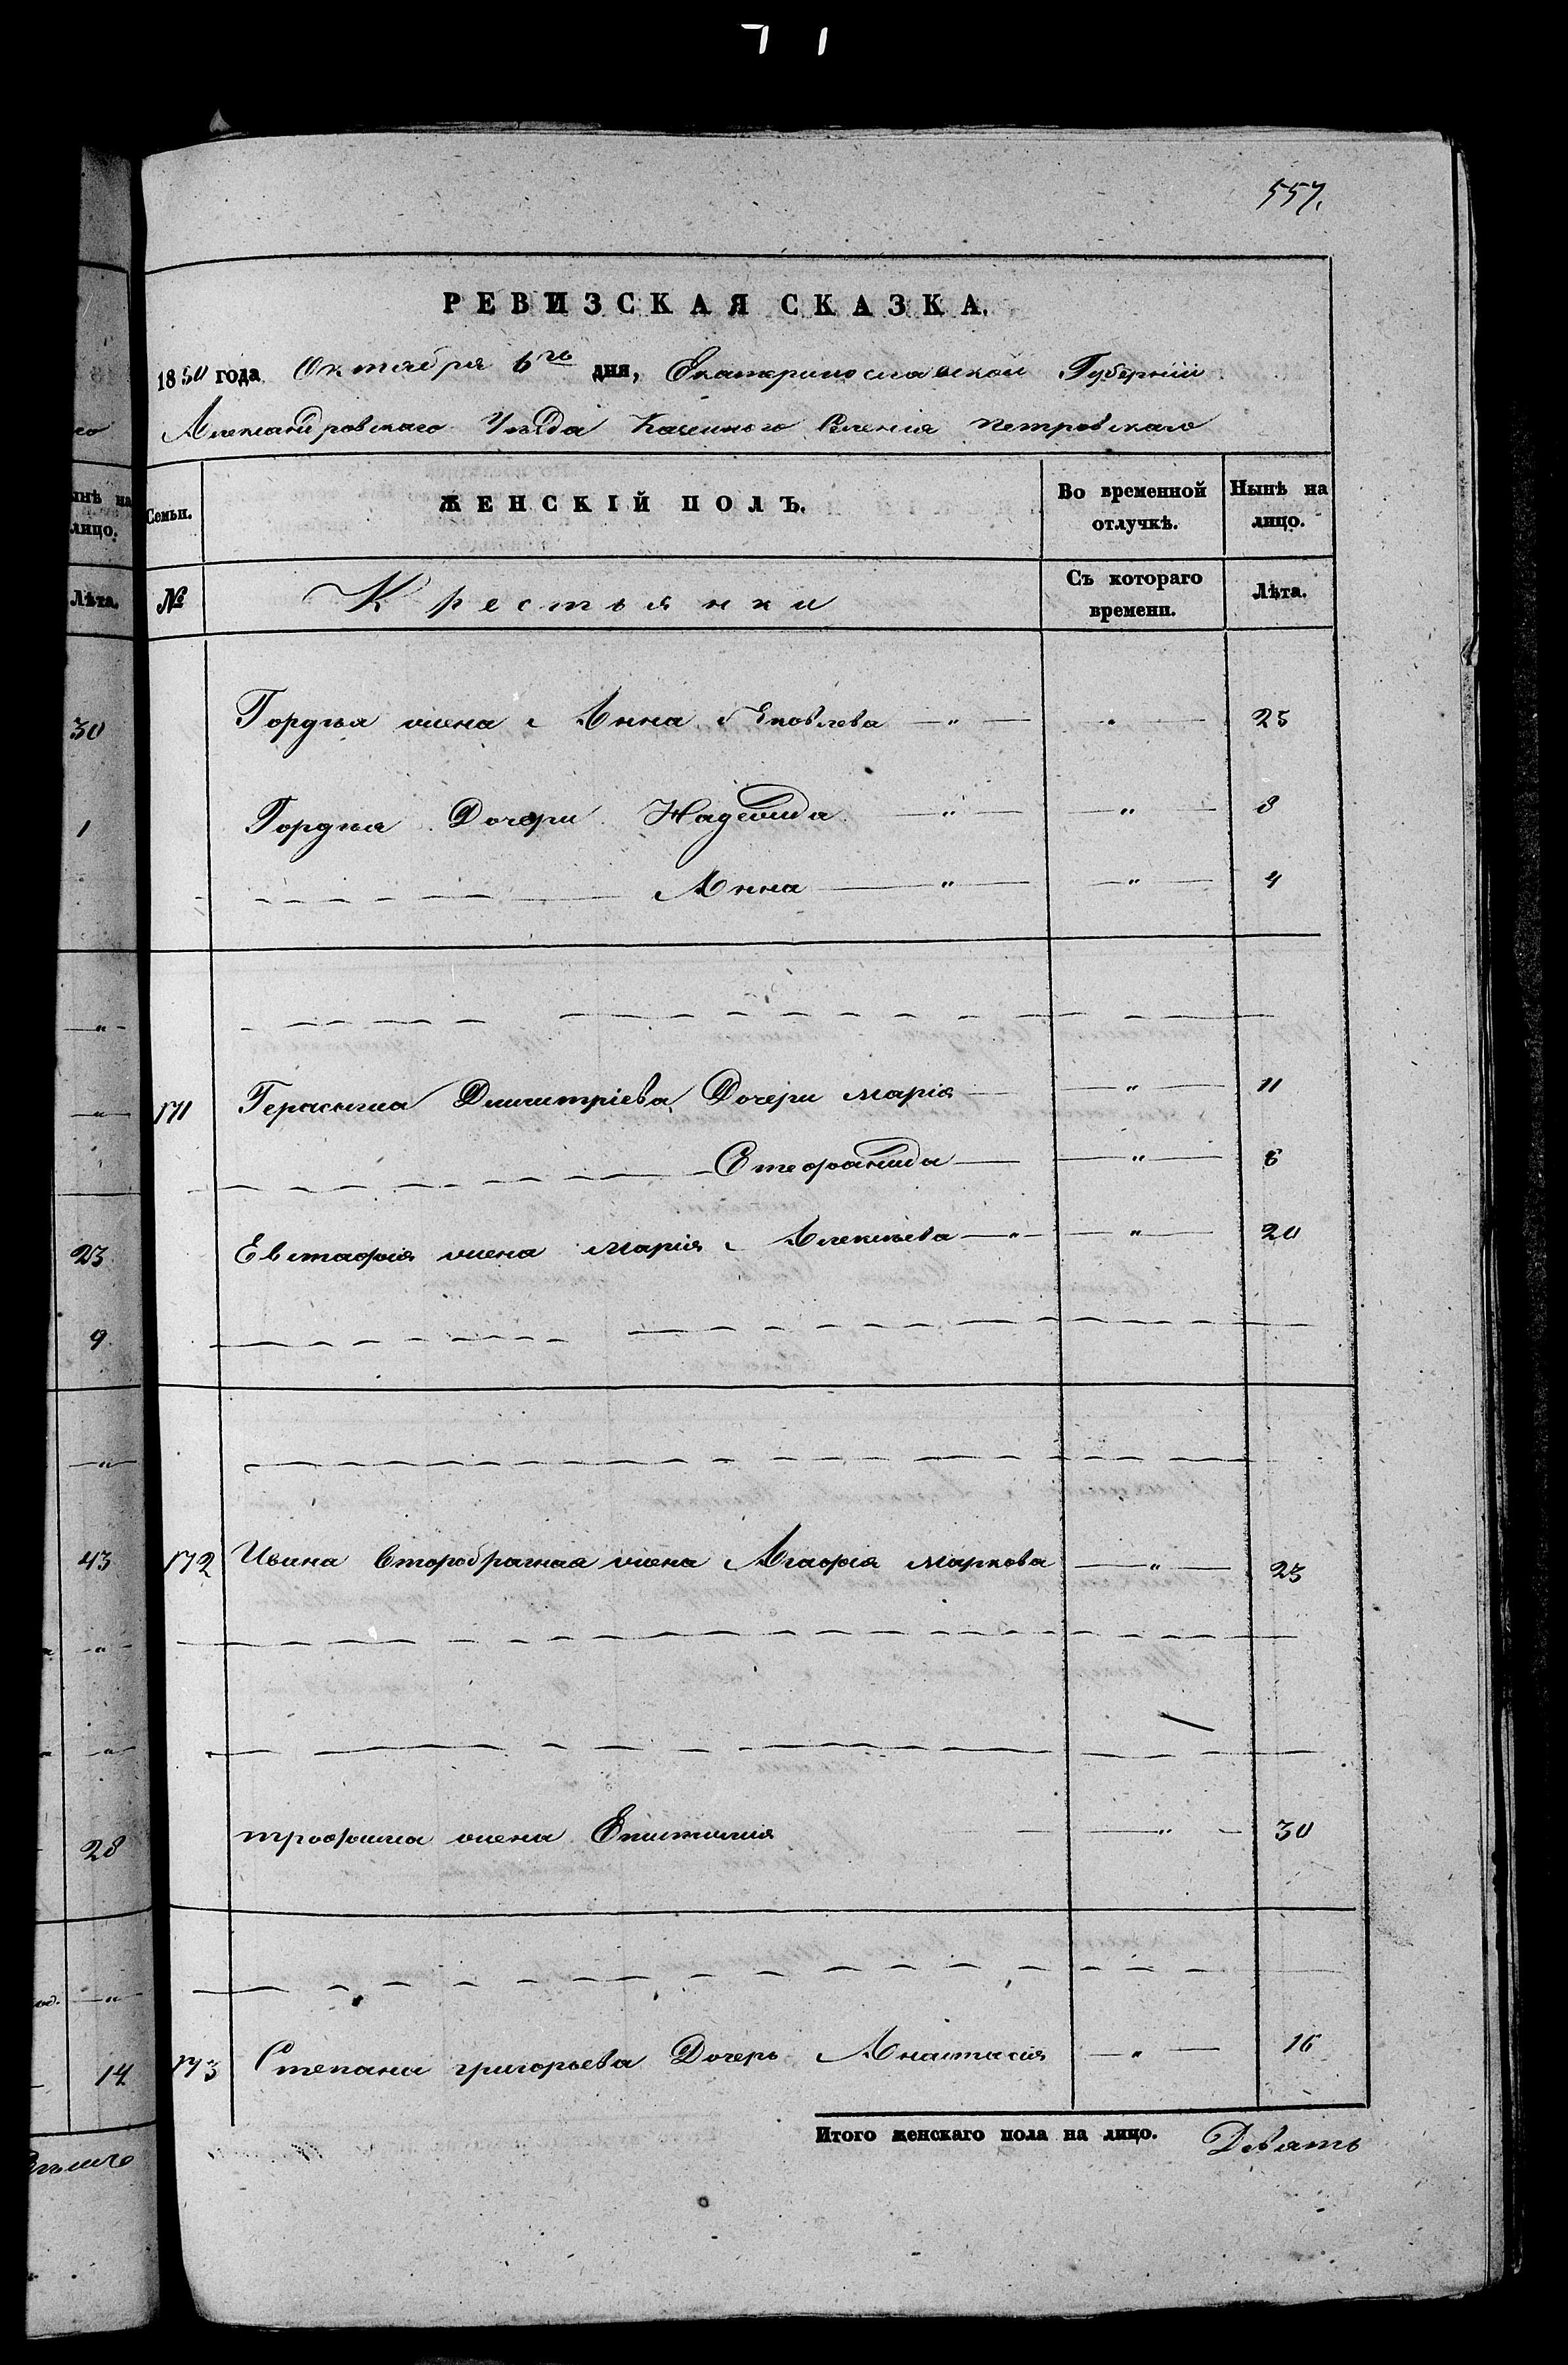 7 1
557.
РЕВИЗСКАЯ СКАЗКА.
1850 года Октября 6го дня, Екатеринославской Губерніи
Александровскаго Уѣзда Казеннаго Селенія Петровскаго
Семьи. ЖЕНСКІЙ ПОЛЪ. Во временной отлучкѣ. Нынѣ на лицо.
№ Крестьянки Съ котораго времени. Лѣта.
Гордѣя жена Анна Яковлева — " — " — 25
Гордѣя Дочери Надежида — " — — " — 8
Анна — " — — " — 4
171 Герасима Дмитріева Дочери Марія — — " — 11
Стефанида — — " — 6
Евстафія жена Марія Алексѣева — " — — " — 20
172 Ивана второбрачная жена Агафія Маркова — " — 23
трофима жена — " — 30
173 Степана григорьева Дочерь Анастасія — " — 16
Итого женскаго пола на лицо. Девять
нѣ на
лицо.
Лѣта.
30
1
— " —
— " —
23
9
— " —
43
— " —
— " —
28
— " —
14